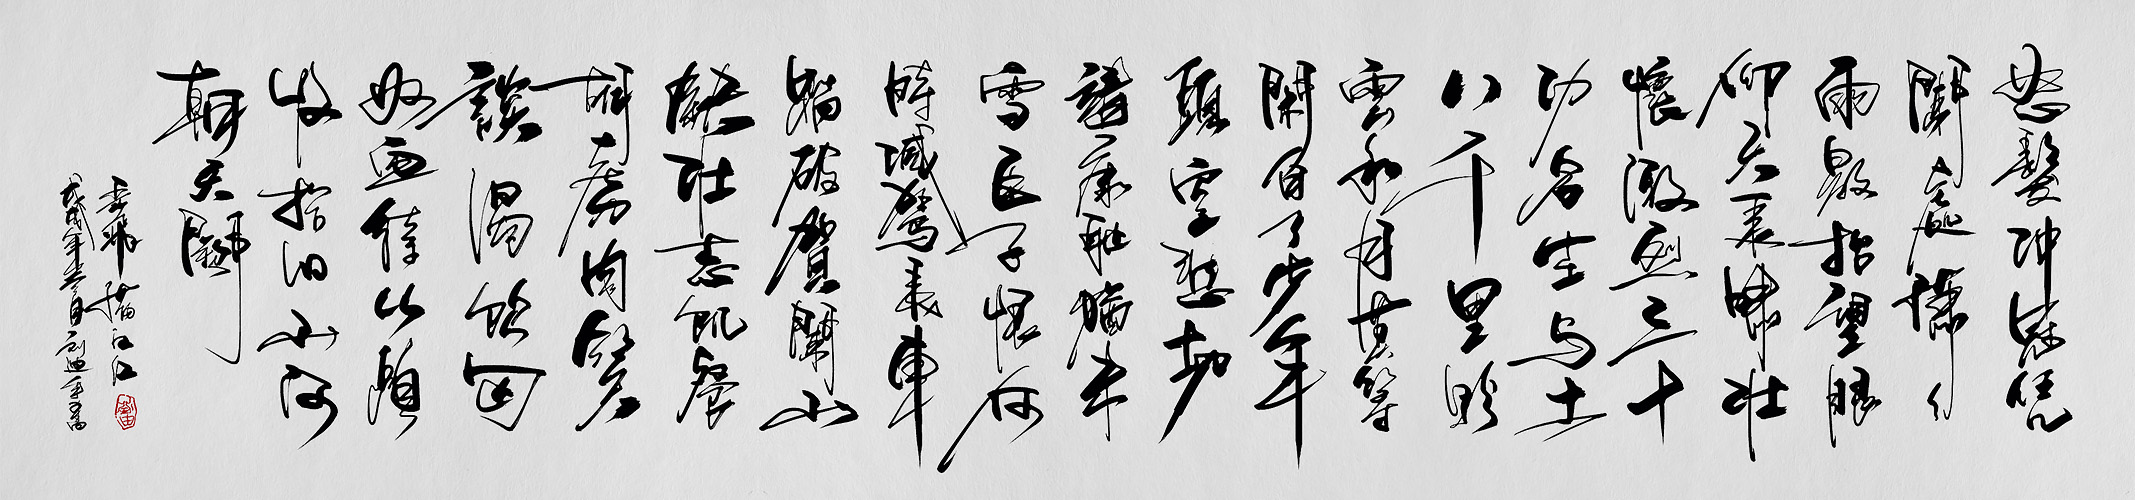 怒髮冲冠凭
闌處瀟々
雨歇抬望眼
仰天長嘯壯
懷激烈三十
功名尘与土
八千里路
雲和月莫等
閑白了少年
頭空悲切
靖康恥猶未
雪臣子恨何
時滅駕長車
踏破賀蘭山
缺壯志飢餐
胡虜肉笑
談渴飲匈
奴血待從頭
收拾旧山河
朝天闕
岳飛满江红
戊戌年月刘迪平書